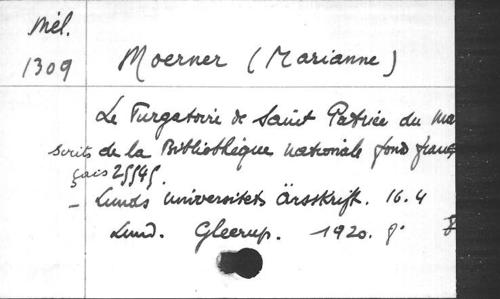 Mél.
1309
Moerner (Marianne)
Le Purgatoire de Saint Patrice du ma
scrits de la Bibliothèque nationale fond fran
çais 25545.
- Lunds Universitets Årsskrift. 16. 4
Lund. Gleerup. 1920. 8°